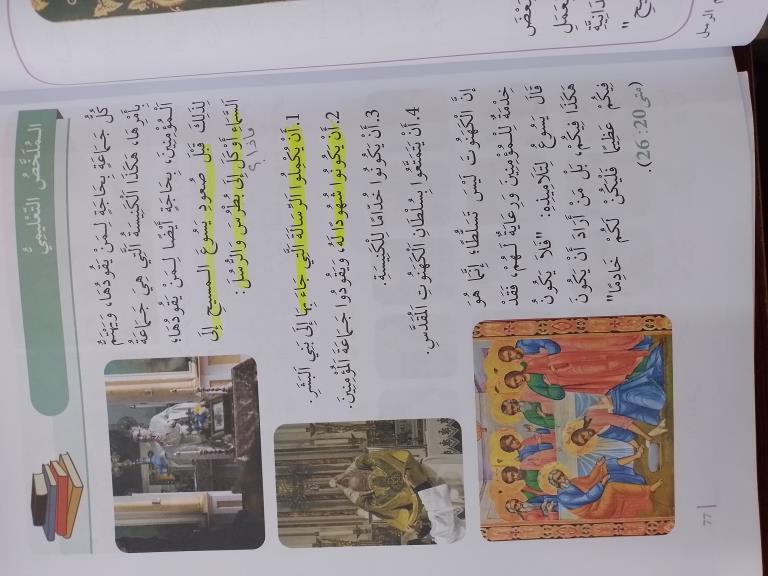 الْمُلَخَّصُ التَّعْلِيمِيُّ
كُلُّ جَمَاعَةٍ بِحَاجَةٍ لِمَنْ يَقُودُهَا، وَيَهْتَمُّ
بِأَمْرِهَا، هَكَذَا الْكَنِيسَةُ الَّتِي هِيَ جَمَاعَةُ
الْمُؤْمِنِينَ، بِحَاجَةٍ أَيْضًا لِمَنْ يَقُودُهَا،
لِذَلِكَ قَبْلَ صُعُودِ يَسُوعَ الْمَسِيحِ إِلَى
السَّمَاءِ أَوْكَلَ إِلَى بُطْرُسَ وَالرُّسُلِ:
ماذا؟
1. أَنْ يُكْمِلُوا الرِّسَالَةَ الَّتِي جَاءَ بِهَا إِلَى بَنِي الْبَشَرِ.
2. أَنْ يَكُونُوا شُهُودًا لَهُ، وَيَقُودُوا جَمَاعَةَ الْمُؤْمِنِينَ.
3. أَنْ يَكُونُوا خُدَّامًا لِلْكَنِيسَةِ.
4. أَنْ يَتَمَتَّعُوا بِسُلْطَانِ الْكَهَنُوتِ الْمُقَدَّسِ.
إِنَّ الْكَهَنُوتَ لَيْسَ تَسَلُّطًا، إِنَّمَا هُوَ
خِدْمَةٌ لِلْمُؤْمِنِينَ وَرِعَايَةٌ لَهُمْ، فَقَدْ
قَالَ يَسُوعُ لِتَلَامِيذِهِ: "فَلَا يَكُونُ
هَكَذَا فِيكُمْ، بَلْ مَنْ أَرَادَ أَنْ يَكُونَ
فِيكُمْ عَظِيمًا فَلْيَكُنْ لَكُمْ خَادِمًا"
(متى 20: 26).
77